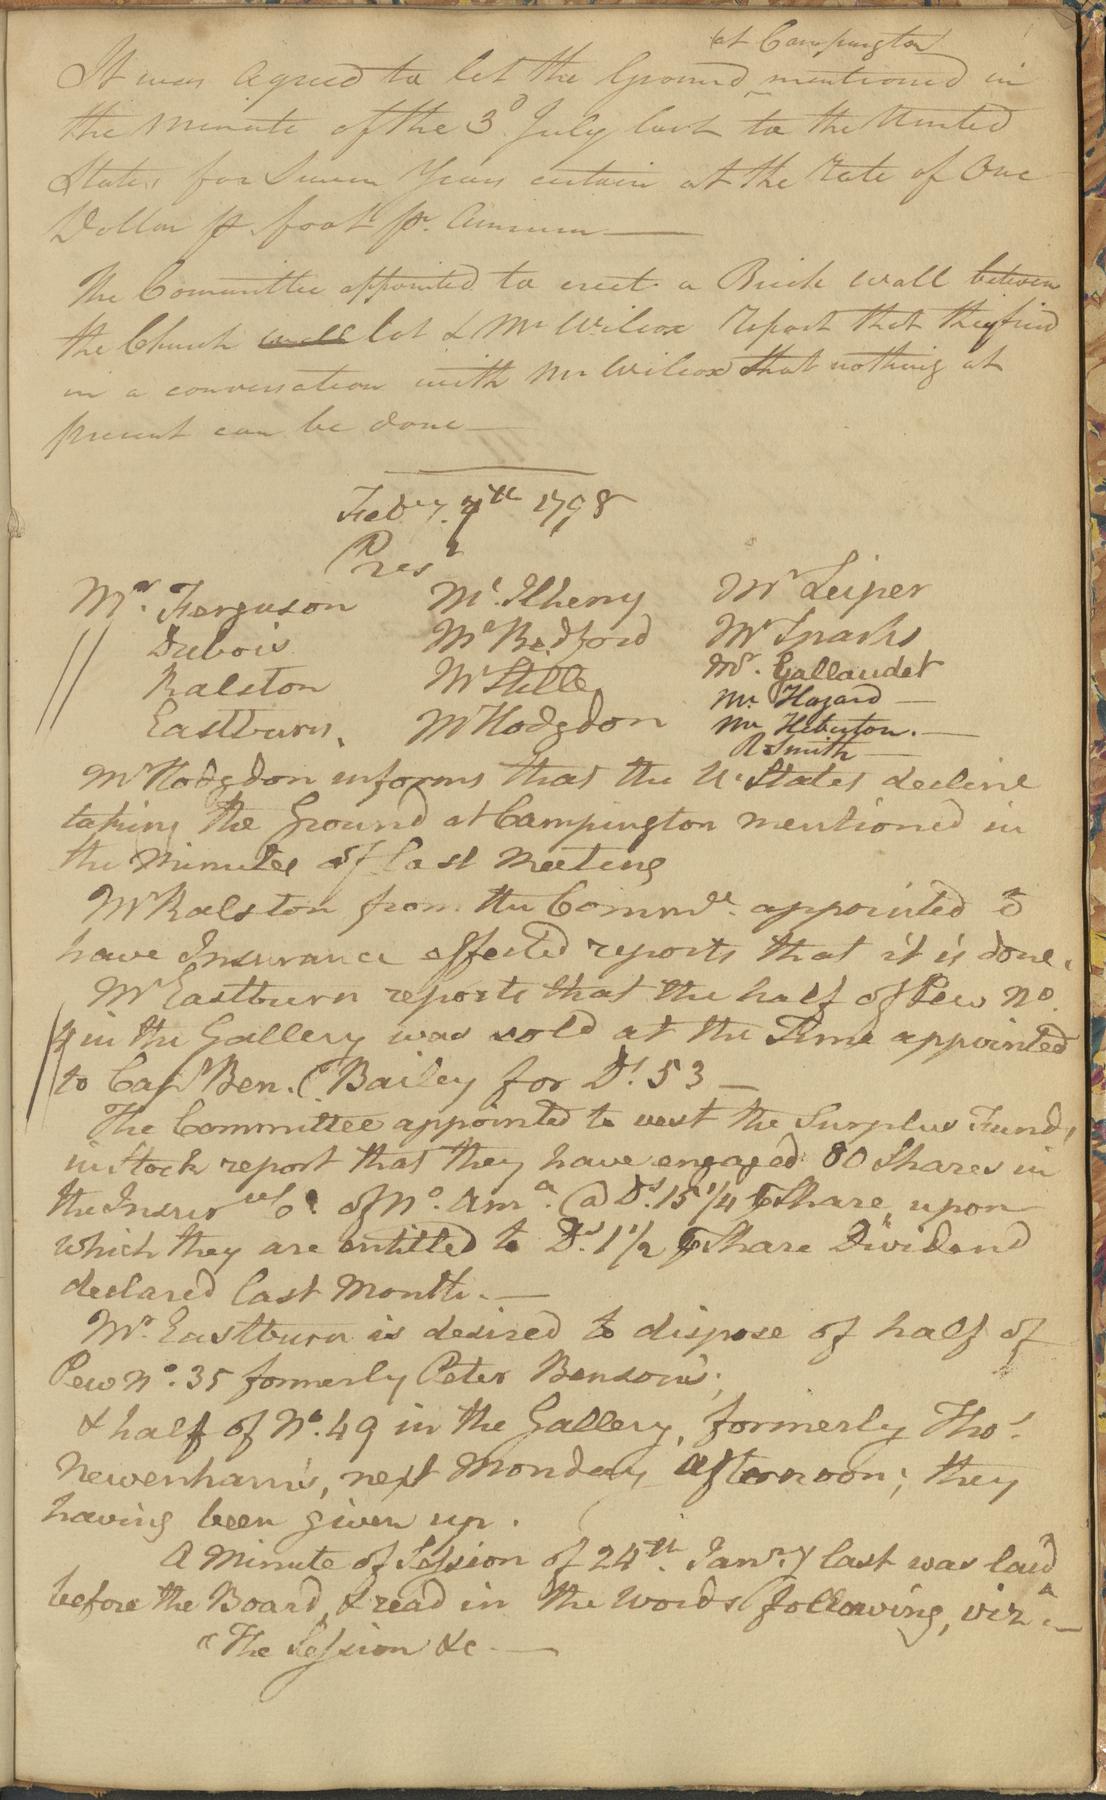 at Campington
It was agreed to let the Ground mentioned in
the Minute of the 3d. July last to the United
States for Seven Years certain at the rate of One
Dollar p. foot pr. Annum —
The Committee appointed to erect a Brick wall between
the Church wall lot & Mr Wilcox report that they find
in a conversation with Mr Wilcox that nothing at
present can be done —
Feby. 7th 1798
Prest
Mr. Ferguson Mr. Ilheny Mr Leiper
// Dubois Mr Bedford Mr Sparhs
// Ralston Mr Stille Mr. Gallaudet
Eastburn. Mr Hodgdon Mr. Hazard —
Mr Heberton. —
R Smith —
Mr Hodgdon informs that the U. States decline
taking the Ground at Campington mentioned in
the Minutes of last Meeting
Mr Ralston from the Commee. appointed to
have Insurance effected reports that it is done.
Mr Eastburn reports that the half of Pew No.
4 in the Gallery was sold at the Time appointed
to Capt Ben. C. Bailey for Ds. 53 —
The Committee appointed to vest the Surplus Funds
in Stock report that they have engaged 80 Shares in
the Insur Co. of No. Ama. @ Ds. 15 1/4 ⅌ Share, upon
which they are entitled to Ds. 1 1/2 ⅌ Share Dividend
declared last Month. —
Mr. Eastburn is desired to dispose of half of
Pew No. 35 formerly Peter Benson's;
& half of No. 49 in the Gallery, formerly Thos.
Newenham's, next Monday afternoon; they
having been given up.
A Minute of Session of 24th. Janry last was laid
before the Board, & read in the words following, vizt.
"The Session &c. —